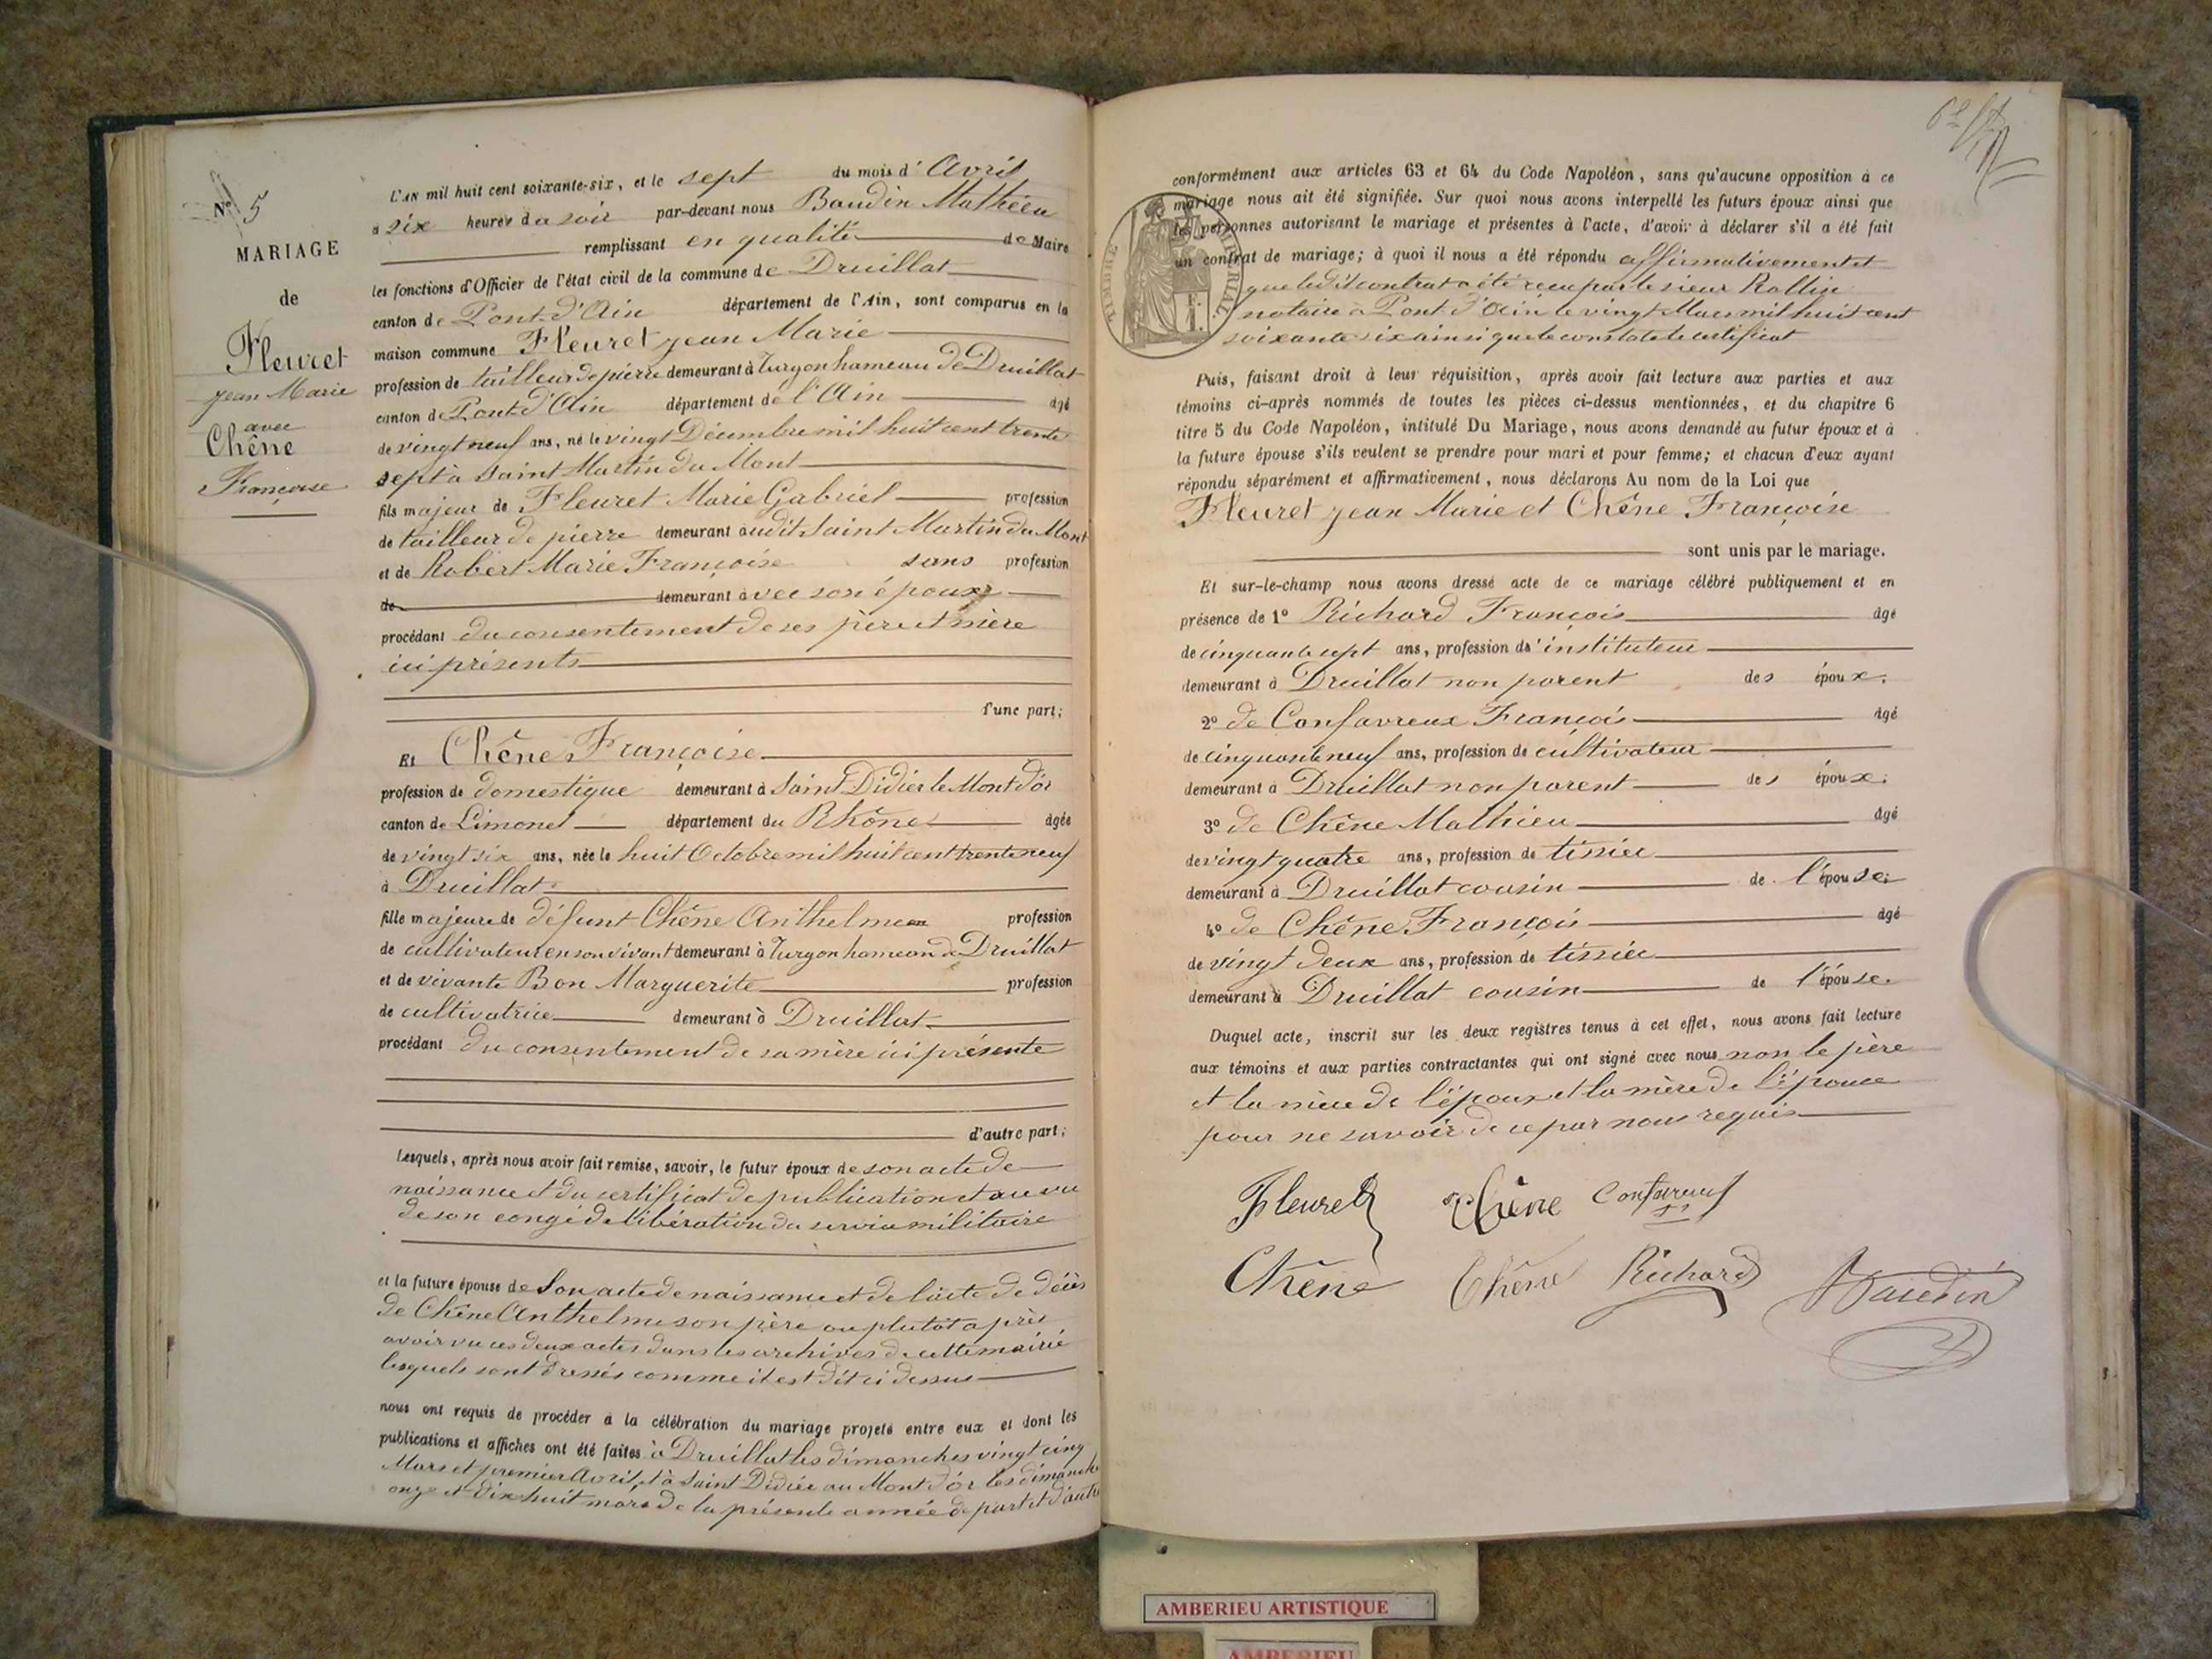 N° 5
MARIAGE
de
Fleuret
Jean Marie
avec
Chêne
Françoise
L'AN mil huit cent soixante-six, et le sept du mois d'Avril
à six heures du soir par-devant nous Baudin Mathieu
remplissant en qualité de Maire
les fonctions d'Officier de l'état civil de la commune de Druillat
canton de Pont-d'Ain département de l'Ain, sont comparus en la
maison commune Fleuret Jean Marie
profession de tailleur de pierre demeurant à Turgon hameau de Druillat
canton de Pont d'Ain département de l'Ain âgé
de vingt neuf ans, né le vingt Décembre mil huit cent trente
sept à Saint Martin du Mont
fils majeur de Fleuret Marie Gabriel profession
de tailleur de pierre demeurant audit Saint Martin du Mont
et de Robert Marie Françoise sans profession
de demeurant avec son époux
procédant du consentement de ses père et mère
ici présents
d'une part;
Et Chêne Françoise
profession de domestique demeurant à Saint Didier le Mont d'or
canton de Limonet département du Rhône âgée
de vingt six ans, née le huit Octobre mil huit cent trente neuf
à Druillat
fille majeure de défunt Chêne Anthelme profession
de cultivateur en son vivant demeurant à Turgon hameau de Druillat
et de vivante Bon Marguerite profession
de cultivatrice demeurant à Druillat
procédant du consentement de sa mère ici présente
d'autre part;
Lesquels, après nous avoir fait remise, savoir, le futur époux de son acte de
naissance et du certificat de publication et au vu
de son congé de libération du service militaire
et la future épouse de Son acte de naissance et de l'acte de décès
de Chêne Anthelme son père ou plutôt après
avoir vu ces deux actes dans les archives de cette mairie
lesquels sont dressés comme il est dit ci dessus
nous ont requis de procéder à la célébration du mariage projeté entre eux et dont les
publications et affiches ont été faites à Druillat les dimanches vingt cinq
Mars et premier Avril, et à Saint Didier au Mont d'or les dimanche
onze et dix huit mars de la présente année de part et d'autre
conformément aux articles 63 et 64 du Code Napoléon, sans qu'aucune opposition à ce
mariage nous ait été signifiée. Sur quoi nous avons interpellé les futurs époux ainsi que
les personnes autorisant le mariage et présentes à l'acte, d'avoir à déclarer s'il a été fait
un contrat de mariage; à quoi il nous a été répondu affirmativement et
que ledit contrat a été reçu par le sieur Rollin
notaire à Pont d'Ain le vingt Mars mil huit cent
soixante six ainsi que le constate le certificat
TIMBRE IMPERIAL
Puis, faisant droit à leur réquisition, après avoir fait lecture aux parties et aux
témoins ci-après nommés de toutes les pièces ci-dessus mentionnées, et du chapitre 6
titre 5 du Code Napoléon, intitulé Du Mariage, nous avons demandé au futur époux et à
la future épouse s'ils veulent se prendre pour mari et pour femme; et chacun d'eux ayant
répondu séparément et affirmativement, nous déclarons Au nom de la Loi que
Fleuret Jean Marie et Chêne Françoise
sont unis par le mariage.
Et sur-le-champ nous avons dressé acte de ce mariage célébré publiquement et en
présence de 1° Richard François âgé
de cinquante sept ans, profession d'instituteur
demeurant à Druillat non parent des époux.
2° de Confavreux François âgé
de cinquante neuf ans, profession de cultivateur
demeurant à Druillat non parent des époux.
3° de Chêne Mathieu âgé
de vingt quatre ans, profession de tissier
demeurant à Druillat cousin de l'épouse.
4° de Chêne François âgé
de vingt deux ans, profession de tissier
demeurant à Druillat cousin de l'épouse.
Duquel acte, inscrit sur les deux registres tenus à cet effet, nous avons fait lecture
aux témoins et aux parties contractantes qui ont signé avec nous non le père
et la mère de l'époux et la mère de l'épouse
pour ne savoir de ce par nous requis
Fleuret Chêne Confavreux
Chêne Chêne Richard Baudin
AMBERIEU ARTISTIQUE
AMBERIEU